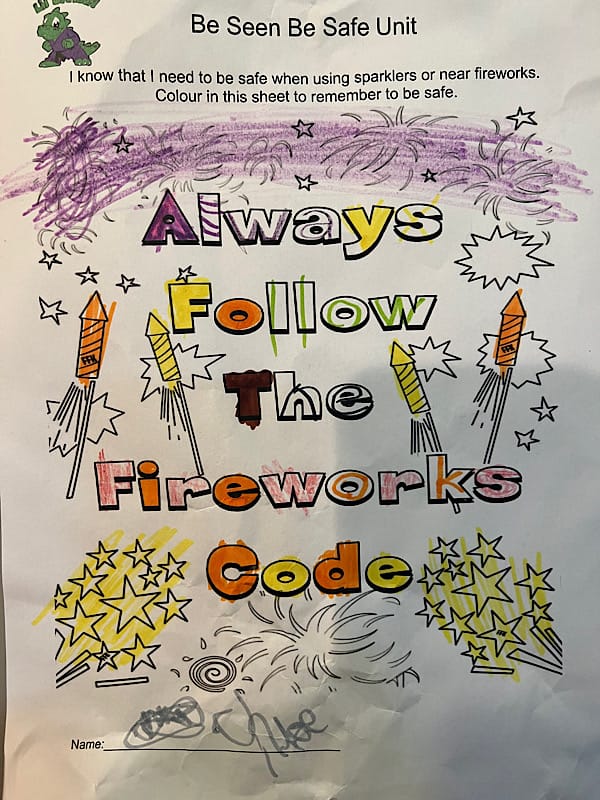 Be Seen Be Safe Unit
I know that I need to be safe when using sparklers or near fireworks.
Colour in this sheet to remember to be safe.
Always
Follow
The
Fireworks
Code
Name: